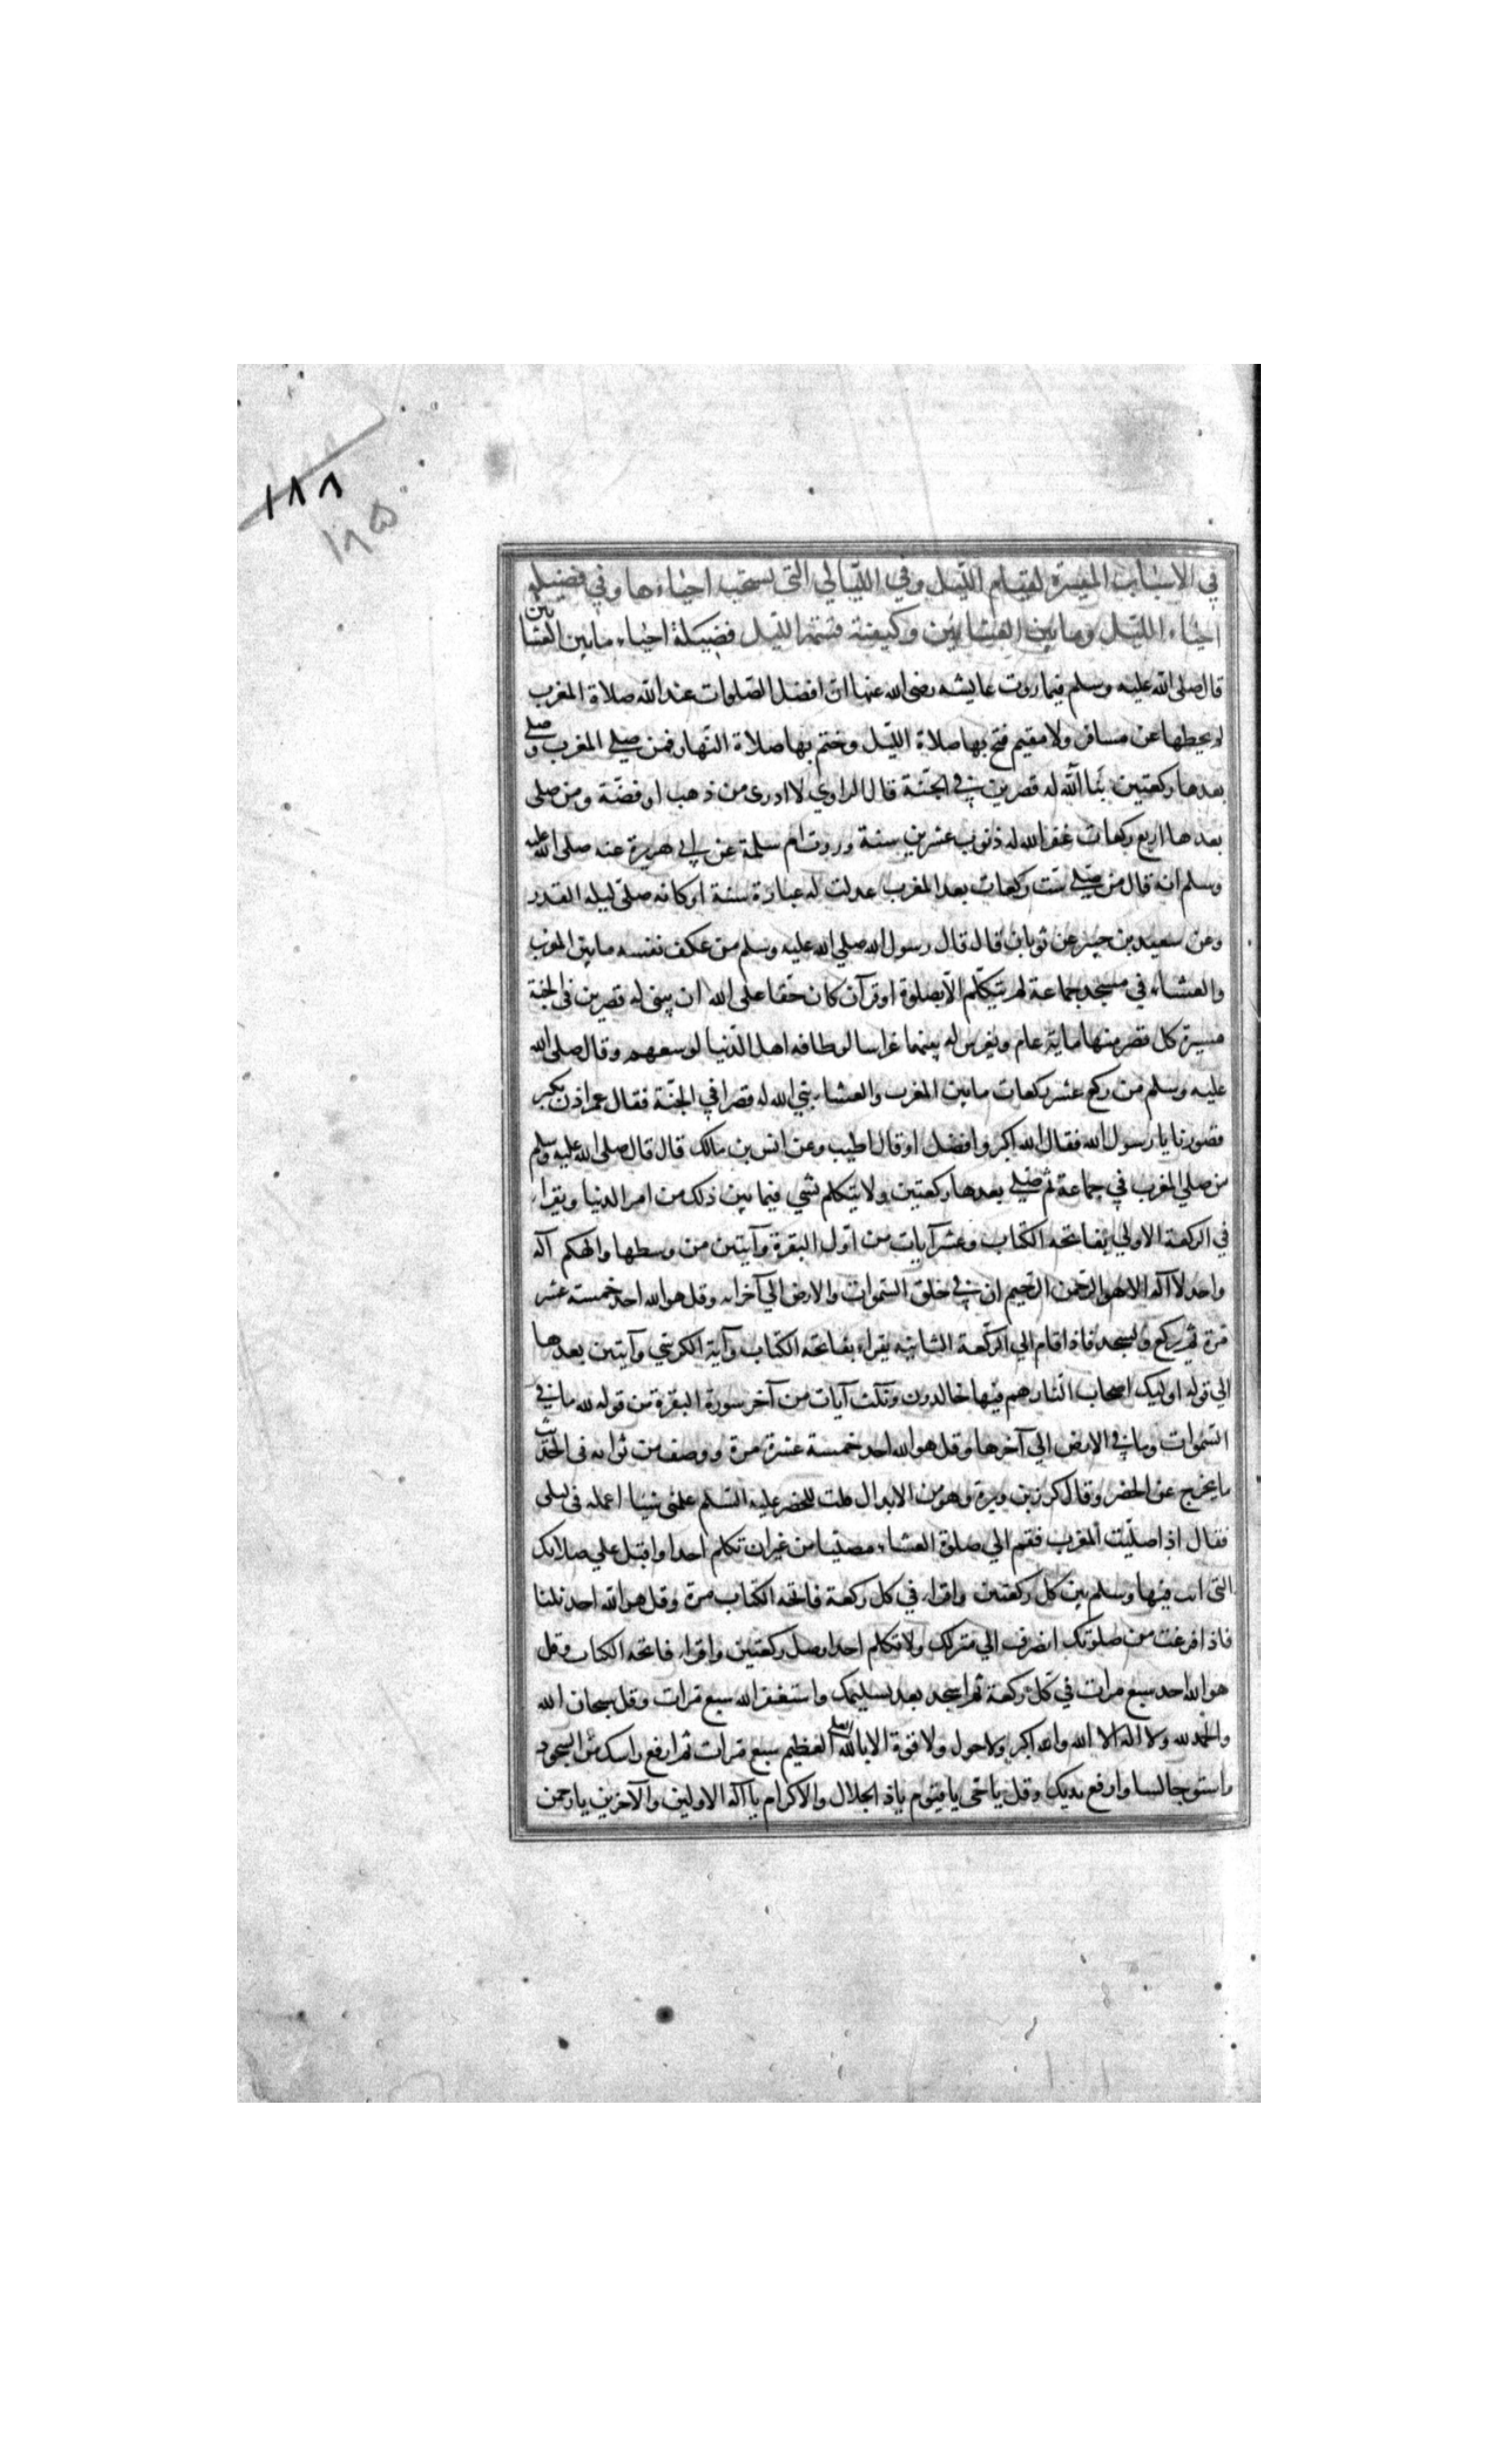 ١٨٨
١٨٥
في الاسباب الميسرة لقيام الليل وفي الليالي التي يستحب احياءها وفي فضيلة
احياء الليل وما بين العشايين وكيفية قسمة الليل فضيلة احياء ما بين العشايين
قال صلى الله عليه وسلم فيما روت عايشه رضى الله عنها ان افضل الصلوات عند الله صلاة المغرب
لم يحطها عن مسافر ولا مقيم فتح بها صلاة الليل وختم بها صلاة النهار فمن صلي المغرب وصلي
بعدها ركعتين بنا الله له قصرين في الجنة قال الراوي لا ادرى من ذهب او فضة ومن صلى
بعدها اربع ركعات غفر الله له ذنوب عشرين سنة وروت ام سلمة عن ابي هريرة عنه صلى الله عليه
وسلم انه قال من صلي ست ركعات بعد المغرب عدلت له عبادة سنة او كانه صلى ليله القدر
وعن سعيد بن جبير عن ثوبان قال قال رسول الله صلي الله عليه وسلم من عكف نفسه ما بين المغرب
والعشاء في مسجد جماعة لم يتكلم الا بصلوة او قرآن كان حقا على الله ان يبنى له قصرين في الجنة
مسيرة كل قصر منها ماية عام ويغرس له بينهما غراسا لو طافه اهل الدنيا لوسعهم وقال صلى الله
عليه وسلم من ركع عشر ركعات ما بين المغرب والعشاء بني الله له قصرا في الجنة فقال عمر اذن يكبر
قصورنا يا رسول الله فقال الله اكبر وافضل او قال اطيب وعن انس بن مالك قال قال صلى الله عليه وسلم
من صلي المغرب في جماعة ثم صلي بعدها ركعتين ولا يتكلم بشي فيما بين ذلك من امر الدنيا ويقراء
في الركعة الاولي بفاتحه الكتاب وعشر آيات من اول البقرة وآيتين من وسطها والهكم آله
واحد لا آله الا هو الرحمن الرحيم ان في خلق السموات والارض الي آخرايه وقل هو الله احد خمسة عشر
مرة ثم يركع ويسجد فاذا قام الي الركعة الثانيه يقراء بفاتحه الكتاب وآية الكرسي وآيتين بعدها
الي قوله اوليك اصحاب النار هم فيها خالدون وثلث آيات من آخر سورة البقرة من قوله لله ما في
السموات وما في الارض الي آخرها وقل هو الله احد خمسة عشرة مرة ووصف من ثوابه في الحديث
ما يخرج عن الحصر وقال كرز بن وبرة وهو من الابدال قلت للخضر عليه السلم علمني شيئا اعمله في ليلى
فقال اذا صليت المغرب فقم الي صلوة العشاء مصليا من غير ان تكلم احدا واقبل علي صلاتك
التى انت فيها وسلم بين كل ركعتين واقراء في كل ركعة فاتحه الكتاب مرة وقل هو الله احد ثلثا
فاذا فرغت من صلوتك انصرف الي منزلك ولا تكلم احدا وصل ركعتين واقراء فاتحه الكتاب وقل
هو الله احد سبع مرات في كل ركعة ثم اسجد بعد تسليمك واستغفر الله سبع مرات وقل سبحان الله
والحمد لله ولا اله الا الله والله اكبر ولا حول ولا قوة الا بالله العلي العظيم سبع مرات ثم ارفع راسك من السجود
واستو جالسا وارفع يديك وقل يا حى يا قيوم ياذ الجلال والاكرام يا آله الاولين والآخرين يا رحمن